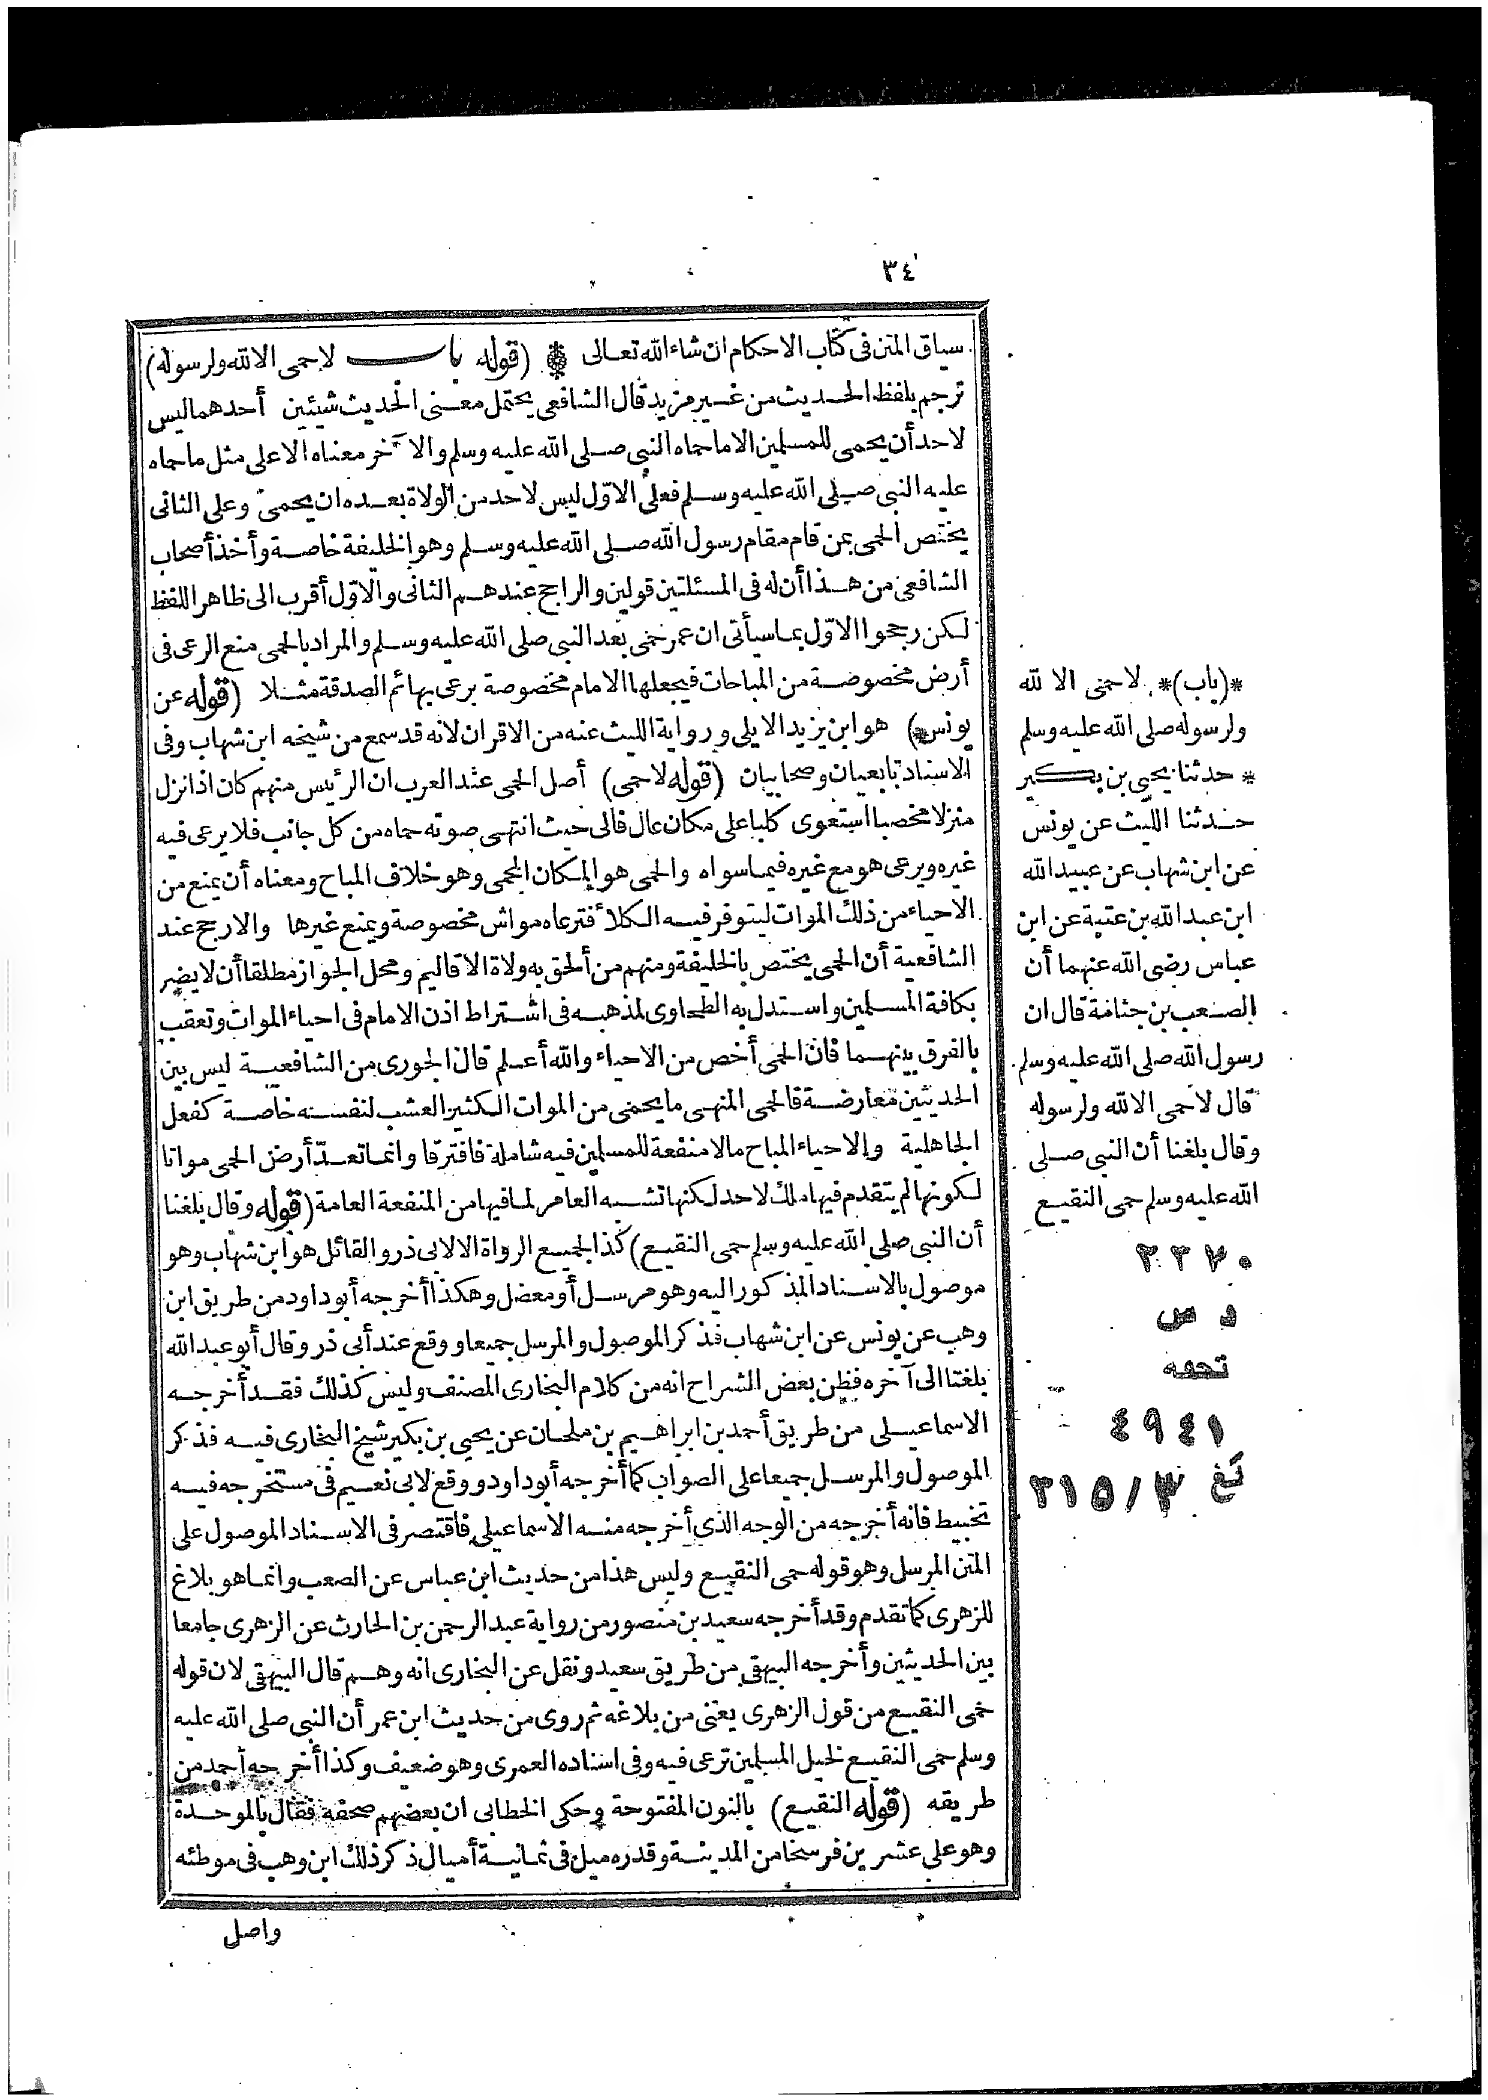 ٣٤
سياق المتن فى كتاب الاحكام ان شاء الله تعالى * (قوله باب لاحمى الالله ولرسوله)
ترجم بلفظ الحديث من غير مزيد قال الشافعى يحتمل معنى الحديث شيئين أحدهما ليس
لاحد أن يحمى للمسلمين الاماحماه النبى صلى الله عليه وسلم والآخر معناه الاعلى مثل ماحماه
عليه النبى صلى الله عليه وسلم فعلى الاول ليس لاحد من الولاة بعده ان يحمى وعلى الثانى
يختص الحمى بمن قام مقام رسول الله صلى الله عليه وسلم وهو الخليفة خاصة وأخذ أصحاب
الشافعى من هذا أن له فى المسئلتين قولين والراجح عندهم الثانى والاول أقرب الى ظاهر اللفظ
لكن رجحوا الاول بماسيأتى ان عمر حمى بعد النبى صلى الله عليه وسلم والمراد بالحمى منع الرعى فى
أرض مخصوصة من المباحات فيجعلها الامام مخصوصة برعى بهائم الصدقة مثلا (قوله عن
يونس) هو ابن يزيد الايلى ورواية الليث عنه من الاقران لانه قد سمع من شيخه ابن شهاب وفى
الاسناد تابعيان وصحابيان (قوله لاحمى) أصل الحمى عند العرب ان الرئيس منهم كان اذا نزل
منزلا مخصبا استعوى كلبا على مكان عال فالى حيث انتهى صوته حماه من كل جانب فلا يرعى فيه
غيره ويرعى هو مع غيره فيما سواه والحمى هو المكان المحمى وهو خلاف المباح ومعناه أن يمنع من
الاحياء من ذلك الموات ليتوفر فيه الكلأ فترعاه مواش مخصوصة ويمنع غيرها والارجح عند
الشافعية أن الحمى يختص بالخليفة ومنهم من ألحق به ولاة الاقاليم ومحل الجواز مطلقا أن لا يضر
بكافة المسلمين واستدل به الطحاوى لمذهبه فى اشتراط اذن الامام فى احياء الموات وتعقب
بالفرق بينهما فان الحمى أخص من الاحياء والله أعلم قال الجورى من الشافعية ليس بين
الحديثين معارضة فالحمى المنهى ما يحمى من الموات الكثير العشب لنفسه خاصة كفعل
الجاهلية والاحياء المباح مالا منفعة للمسلمين فيه شاملة فافترقا وانما تعد أرض الحمى مواتا
لكونها لم يتقدم فيها ملك لاحد لكنها تشبه العامر لمافيها من المنفعة العامة (قوله وقال بلغنا
أن النبى صلى الله عليه وسلم حمى النقيع) كذا لجميع الرواة الا لابى ذر والقائل هو ابن شهاب وهو
موصول بالاسناد المذكور اليه وهو مرسل أو معضل وهكذا أخرجه أبو داود من طريق ابن
وهب عن يونس عن ابن شهاب فذكر الموصول والمرسل جميعا ووقع عند أبى ذر وقال أبو عبد الله
بلغنا الى آخره فظن بعض الشراح انه من كلام البخارى المصنف وليس كذلك فقد أخرجه
الاسماعيلى من طريق أحمد بن ابراهيم بن ملحان عن يحيى بن بكير شيخ البخارى فيه فذكر
الموصول والمرسل جميعا على الصواب كما أخرجه أبو داود ووقع لابى نعيم فى مستخرجه فيه
تخبيط فانه أخرجه من الوجه الذى أخرجه منه الاسماعيلى فاقتصر فى الاسناد الموصول على
المتن المرسل وهو قوله حمى النقيع وليس هذا من حديث ابن عباس عن الصعب وانما هو بلاغ
للزهرى كما تقدم وقد أخرجه سعيد بن منصور من رواية عبد الرحمن بن الحارث عن الزهرى جامعا
بين الحديثين وأخرجه البيهقى من طريق سعيد ونقل عن البخارى انه وهم قال البيهقى لان قوله
حمى النقيع من قول الزهرى يعنى من بلاغه ثم روى من حديث ابن عمر أن النبى صلى الله عليه
وسلم حمى النقيع لخيل المسلمين ترعى فيه وفى اسناده العمرى وهو ضعيف وكذا أخرجه أحمد من
طريقه (قوله النقيع) بالنون المفتوحة وحكى الخطابى ان بعضهم صحفه فقال بالموحدة
وهو على عشرين فرسخا من المدينة وقدره ميل فى ثمانية أميال ذكر ذلك ابن وهب فى موطئه
واصل
*(باب)* لاحمى الا لله
ولرسوله صلى الله عليه وسلم
* حدثنا يحيى بن بكير
حدثنا الليث عن يونس
عن ابن شهاب عن عبيد الله
ابن عبد الله بن عتبة عن ابن
عباس رضى الله عنهما أن
الصعب بن جثامة قال ان
رسول الله صلى الله عليه وسلم
قال لاحمى الالله ولرسوله
وقال بلغنا أن النبى صلى
الله عليه وسلم حمى النقيع
٢٣٧٠
د س
تحفه
٤٩٤١
تغ ٣/٣١٥